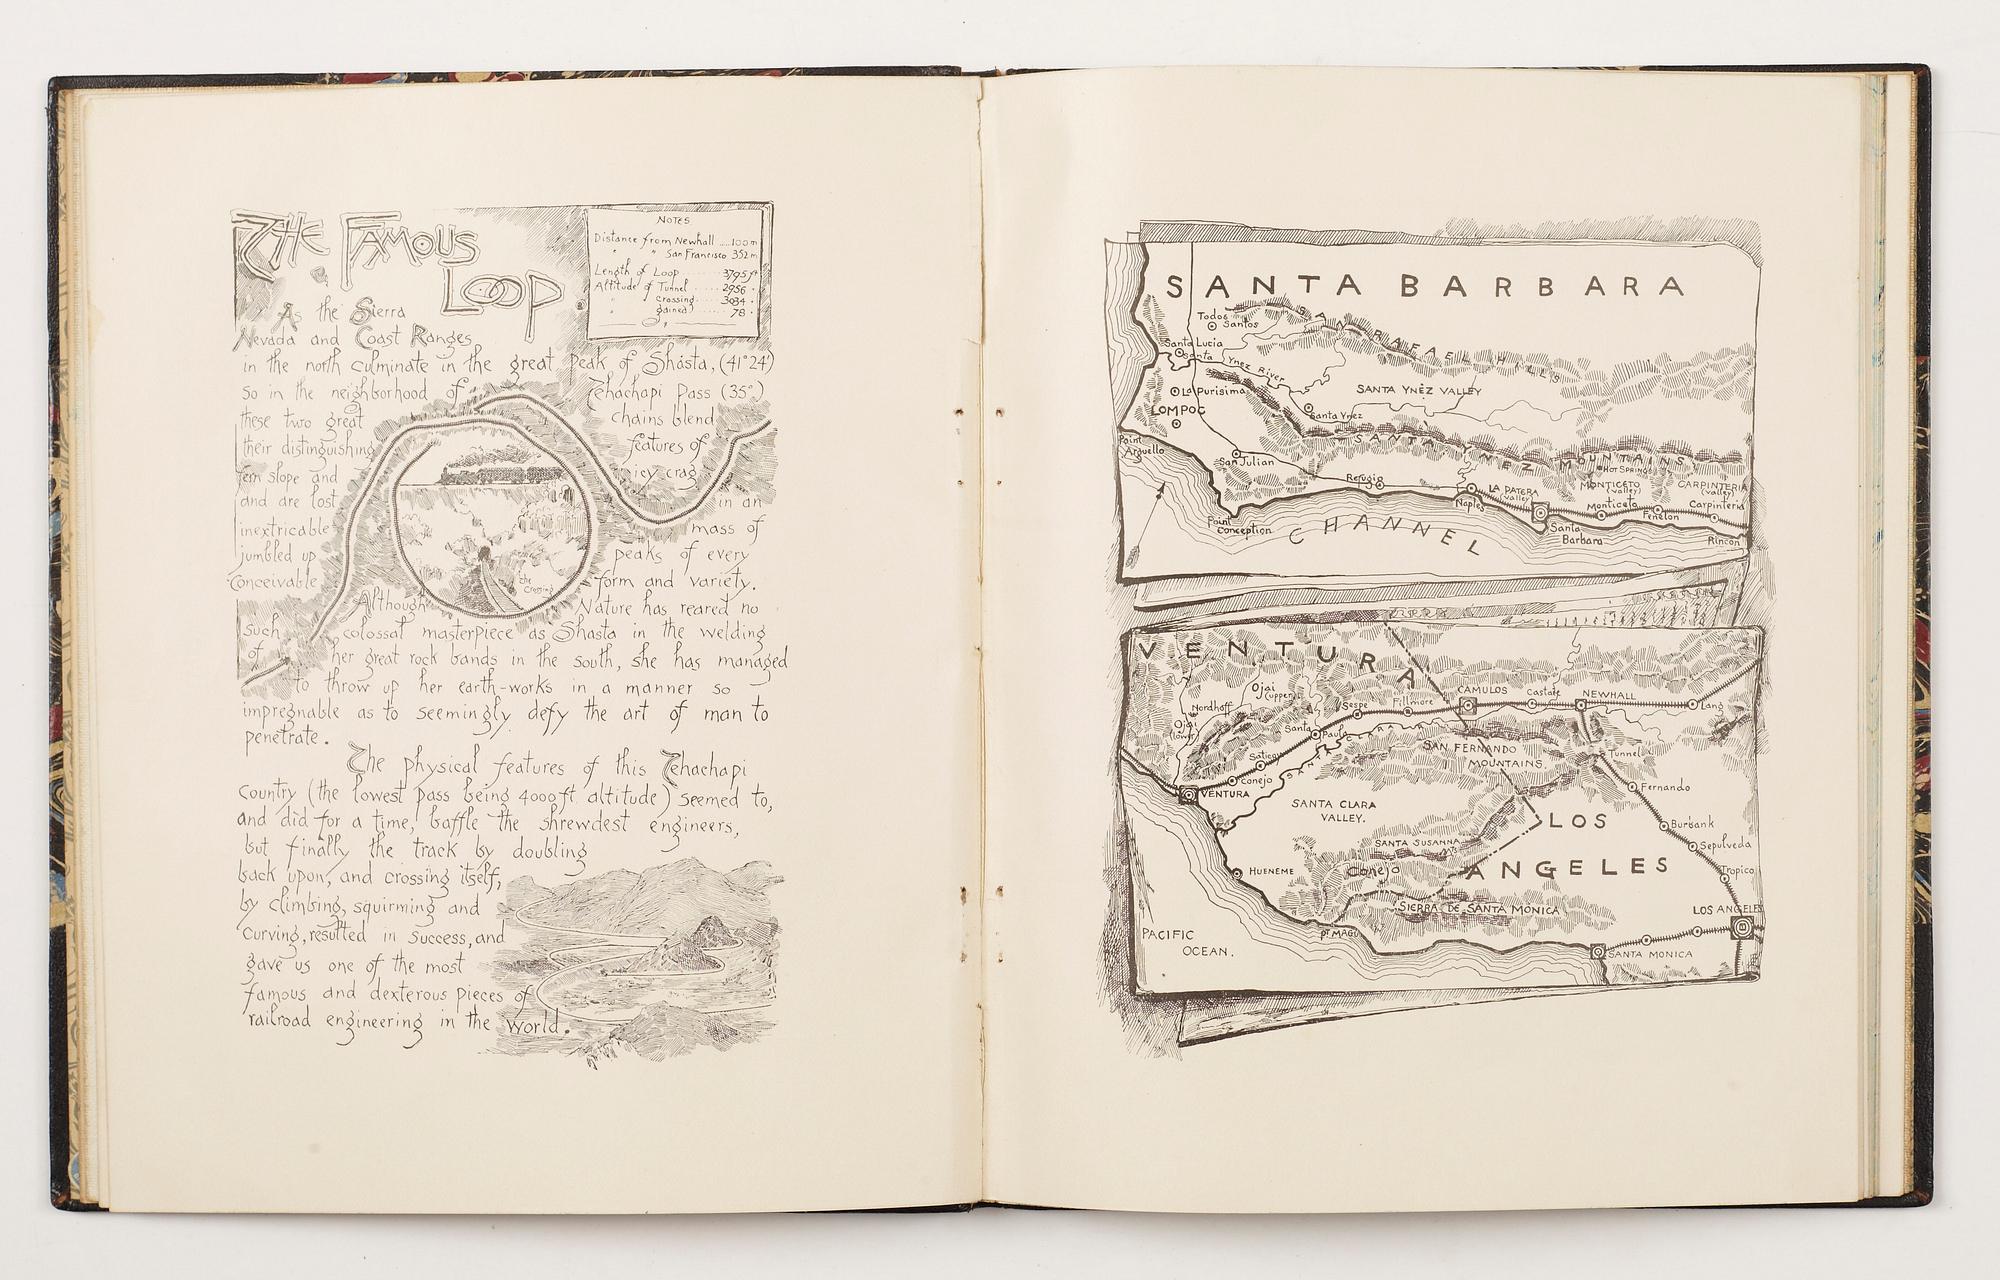 The Famous
Loop
NOTES
Distance from Newhall .... 100 m
" " San Francisco 352 m
Length of Loop ........ 3795 ft
Altitude of Tunnel ..... 2956 "
" crossing ..... 3034 "
" gained ...... 78 "
As the Sierra
Nevada and Coast Ranges
in the north culminate in the great peak of Shasta, (41°24')
so in the neighborhood of Tehachapi Pass (35°)
these two great chains blend
their distinguishing features of
fern slope and icy crag
and are lost in an
inextricable mass of
jumbled up peaks of every
conceivable form and variety.
Although Nature has reared no
such colossal masterpiece as Shasta in the welding
of her great rock bands in the south, she has managed
to throw up her earth-works in a manner so
impregnable as to seemingly defy the art of man to
penetrate.
the
Crossing
The physical features of this Tehachapi
country (the lowest pass being 4000 ft altitude) seemed to,
and did for a time, baffle the shrewdest engineers,
but finally the track by doubling
back upon, and crossing itself,
by climbing, squirming and
curving, resulted in success, and
gave us one of the most
famous and dexterous pieces of
railroad engineering in the world.
SANTA BARBARA
Todos
Santos
SAN RAFAEL HILLS
Santa Lucia
Santa Ynez River
La Purisima
SANTA YNEZ VALLEY
LOMPOC
Santa Ynez
Point
Arguello
SANTA YNEZ MOUNTAINS
HOT SPRINGS
San Julian
Refugio
LA PATERA
(valley)
MONTICETO
(valley)
CARPINTERIA
(valley)
Naples
Monticeto
Fenelon
Carpinteria
Point
Conception
CHANNEL
Santa
Barbara
Rincon
VENTURA
Ojai
(upper)
Nordhoff
Ojai
(lower)
Sespe
Fillmore
CAMULOS
Castaic
NEWHALL
Lang
Santa Paula
SANTA CLARA
SAN FERNANDO
MOUNTAINS.
Tunnel
Saticoy
Conejo
VENTURA
Fernando
SANTA CLARA
VALLEY.
LOS
ANGELES
Burbank
SANTA SUSANNA MTS
Sepulveda
HUENEME
Conejo
Tropico
SIERRA DE SANTA MONICA
LOS ANGELES
PACIFIC
OCEAN.
PT MAGU
SANTA MONICA